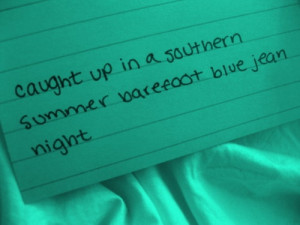 caught up in a southern
summer barefoot blue jean
night